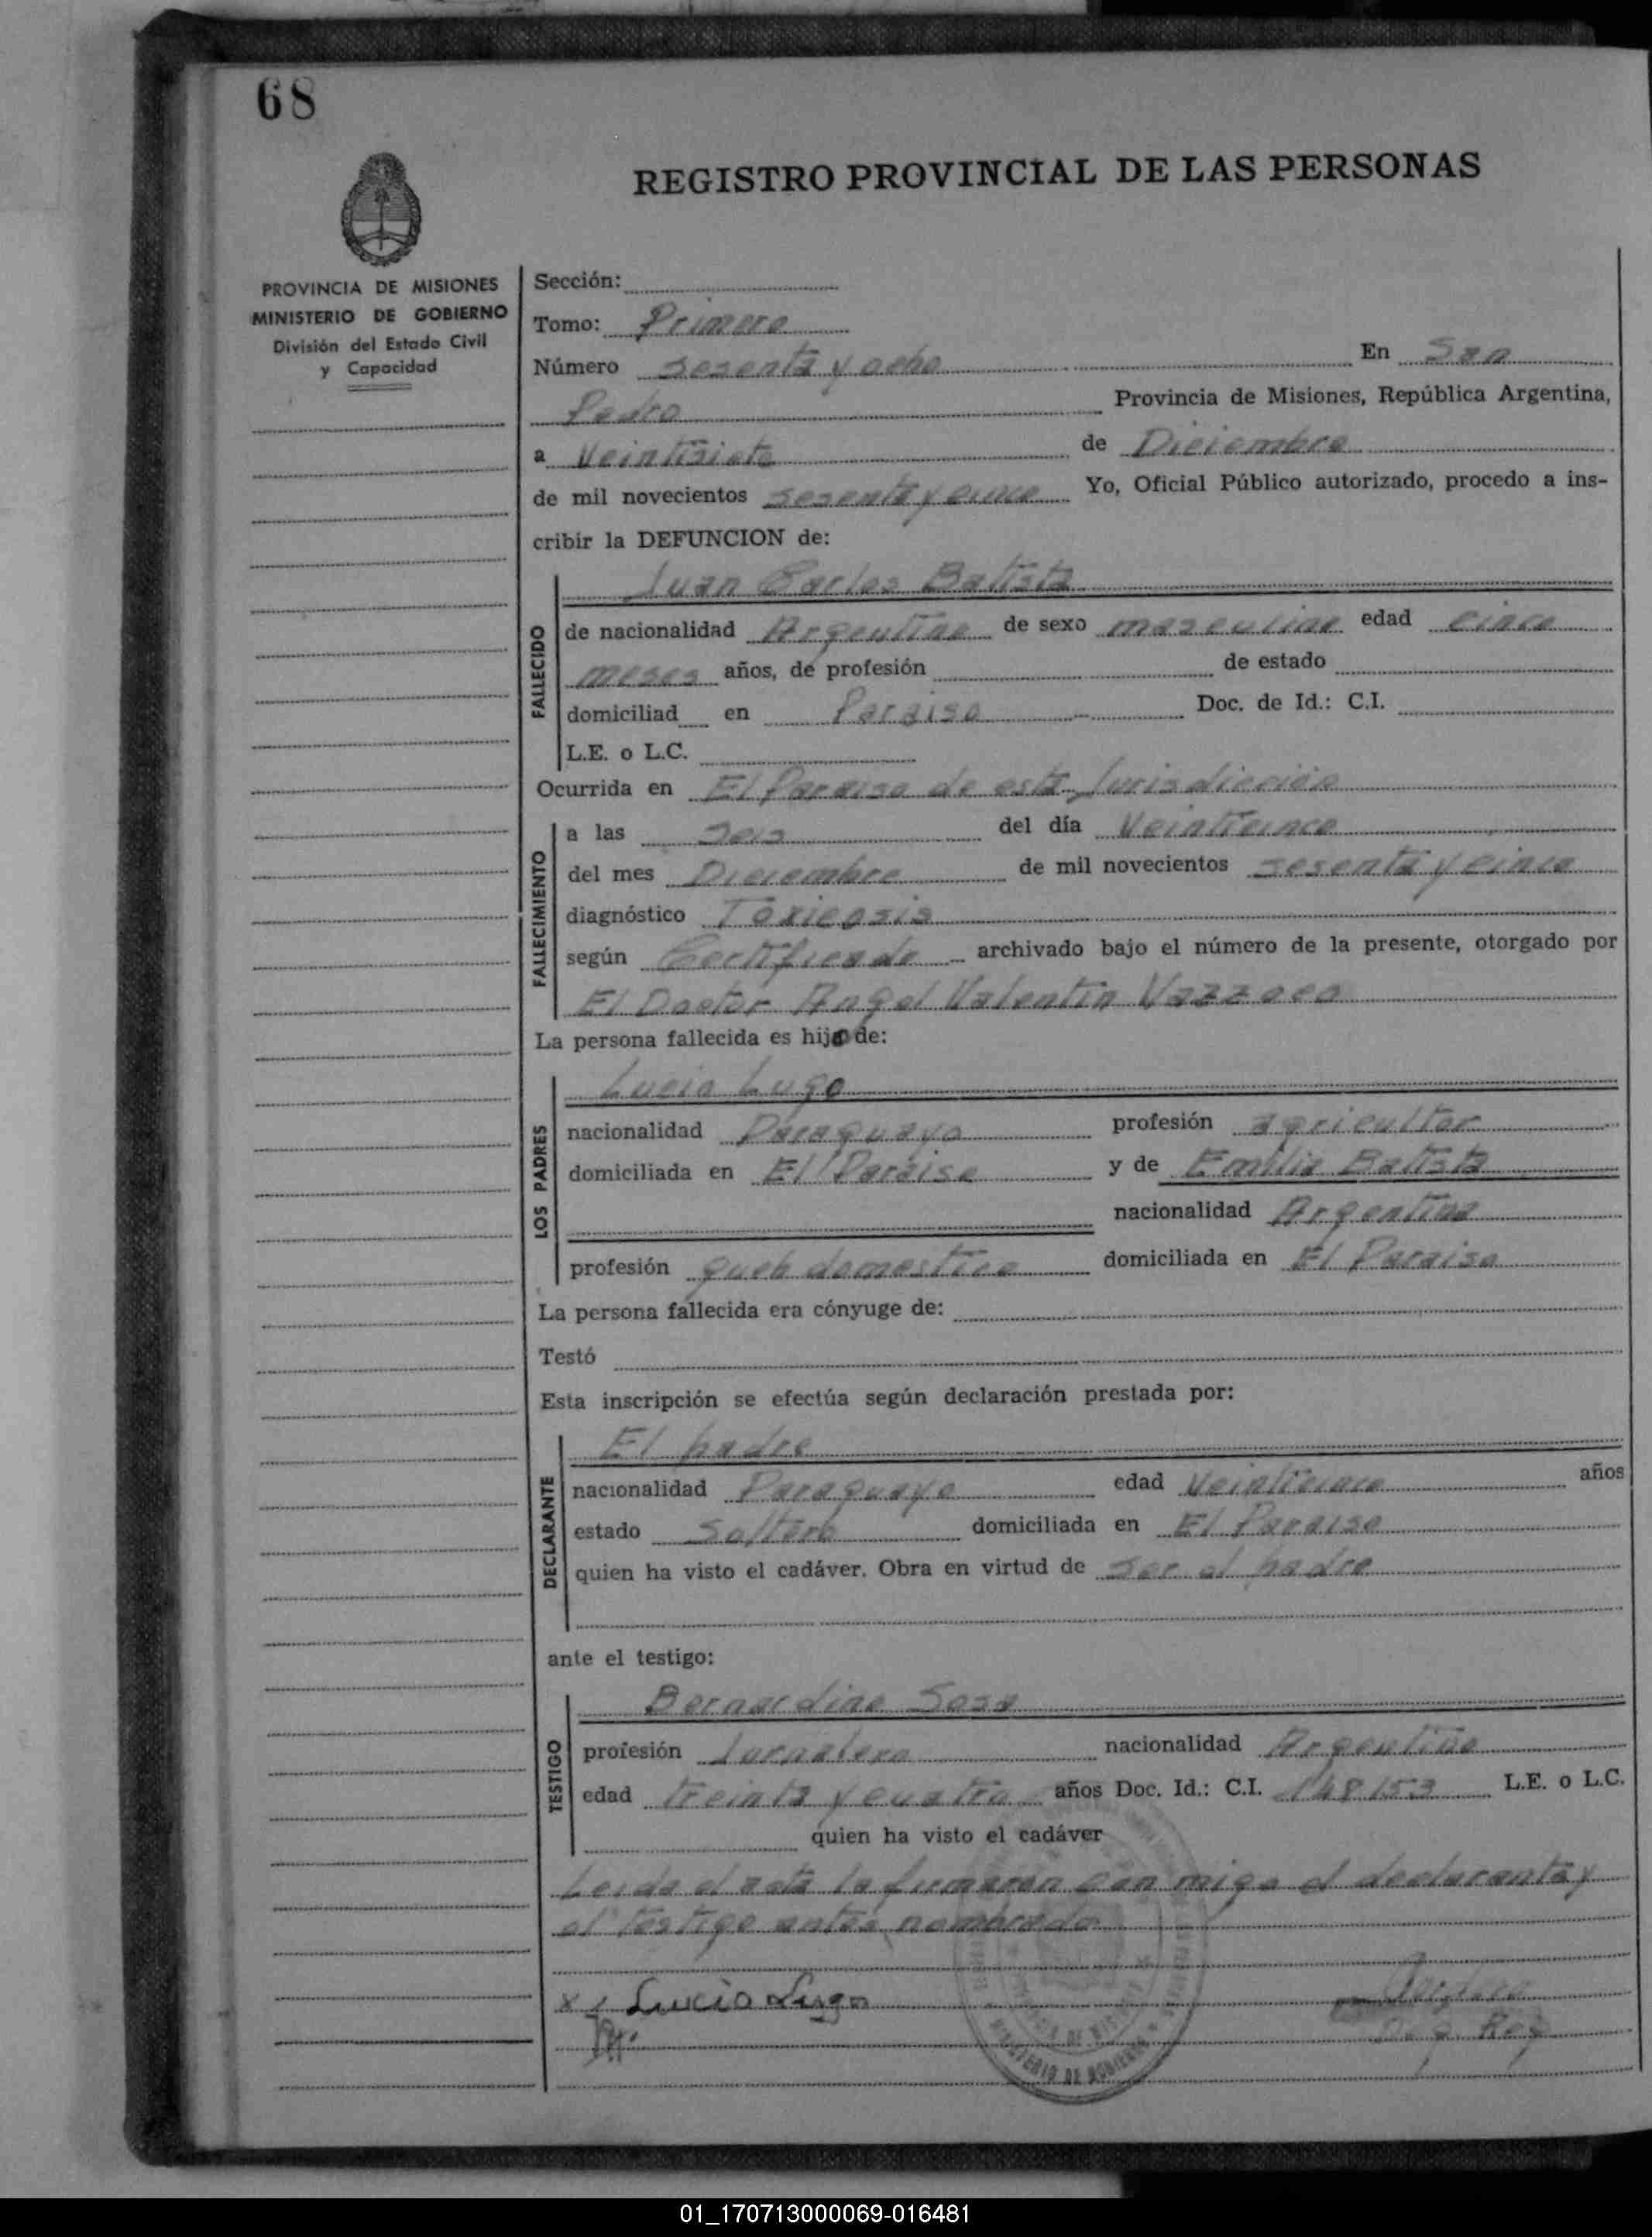 68
REGISTRO PROVINCIAL DE LAS PERSONAS
PROVINCIA DE MISIONES
MINISTERIO DE GOBIERNO
División del Estado Civil
y Capacidad
Sección:
Tomo: Primero
Número sesenta y ocho En San
Pedro Provincia de Misiones, República Argentina,
a Veintisiete de Diciembre
de mil novecientos sesenta y cinco Yo, Oficial Público autorizado, procedo a ins-
cribir la DEFUNCION de:
Juan Carlos Batista
FALLECIDO
de nacionalidad Argentino de sexo masculino edad cinco
meses años, de profesión de estado
domiciliad en Paraiso Doc. de Id.: C.I.
L.E. o L.C.
Ocurrida en El Paraiso de esta Jurisdicción
FALLECIMIENTO
a las Seis del día Veinticinco
del mes Diciembre de mil novecientos sesenta y cinco
diagnóstico Toxicosis
según Certificado archivado bajo el número de la presente, otorgado por
El Doctor Angel Valentin
La persona fallecida es hijo de:
LOS PADRES
Lucio Lugo
nacionalidad Paraguayo profesión agricultor
domiciliada en El Paraiso y de Emilia Batista
nacionalidad Argentina
profesión queh domestico domiciliada en El Paraiso
La persona fallecida era cónyuge de:
Testó
Esta inscripción se efectúa según declaración prestada por:
DECLARANTE
El padre
nacionalidad Paraguayo edad Veinticinco años
estado Soltero domiciliada en El Paraiso
quien ha visto el cadáver. Obra en virtud de ser el padre
ante el testigo:
TESTIGO
Bernardino Sosa
profesión Jornalero nacionalidad Argentino
edad treinta y cuatro años Doc. Id.: C.I. 148153 L.E. o L.C.
quien ha visto el cadáver
Leida el acta la firmaron con migo el declarante y
el testigo antes nombrado
x Lucio Lugo
MINISTERIO DE GOBIERNO
01_170713000069-016481